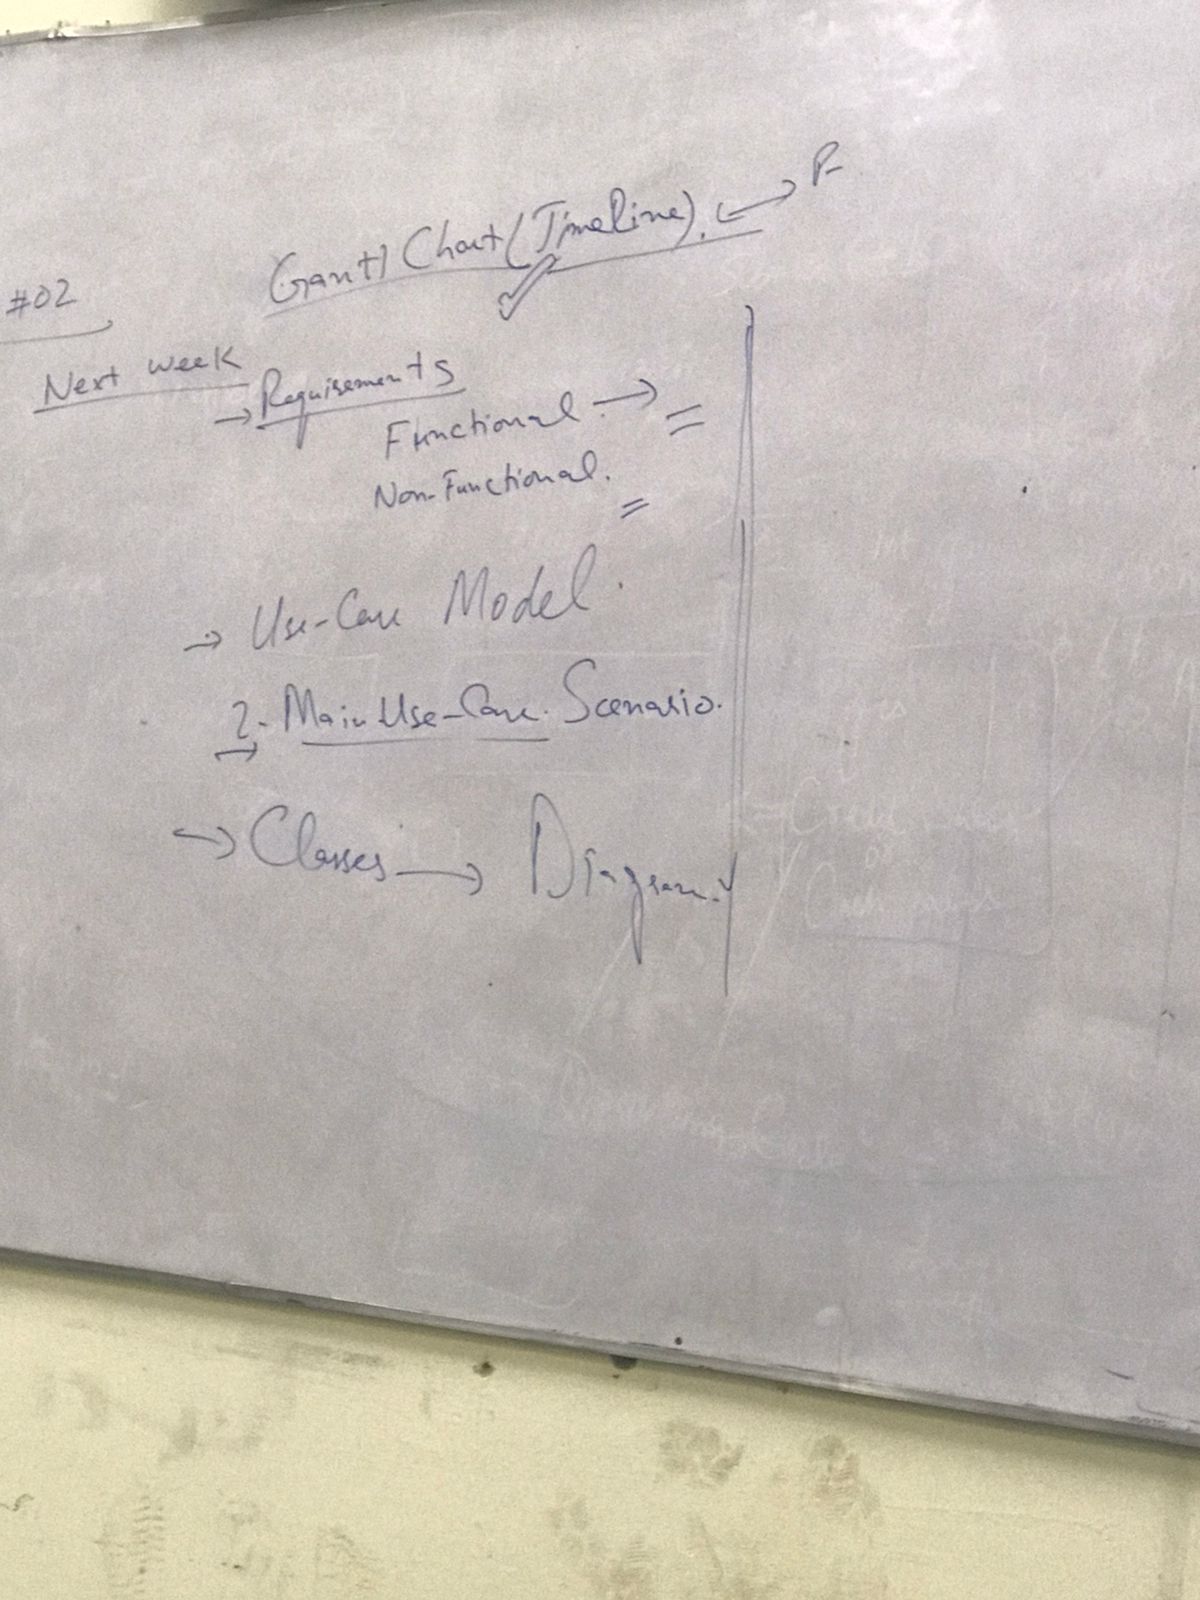 Gantt Chart (Timeline). ↔ P-
#02
Next week
→ Requirements
Functional →
Non-Functional.
→ Use-Case Model.
2- Main Use-Case Scenario.
→ Classes → Diagram.